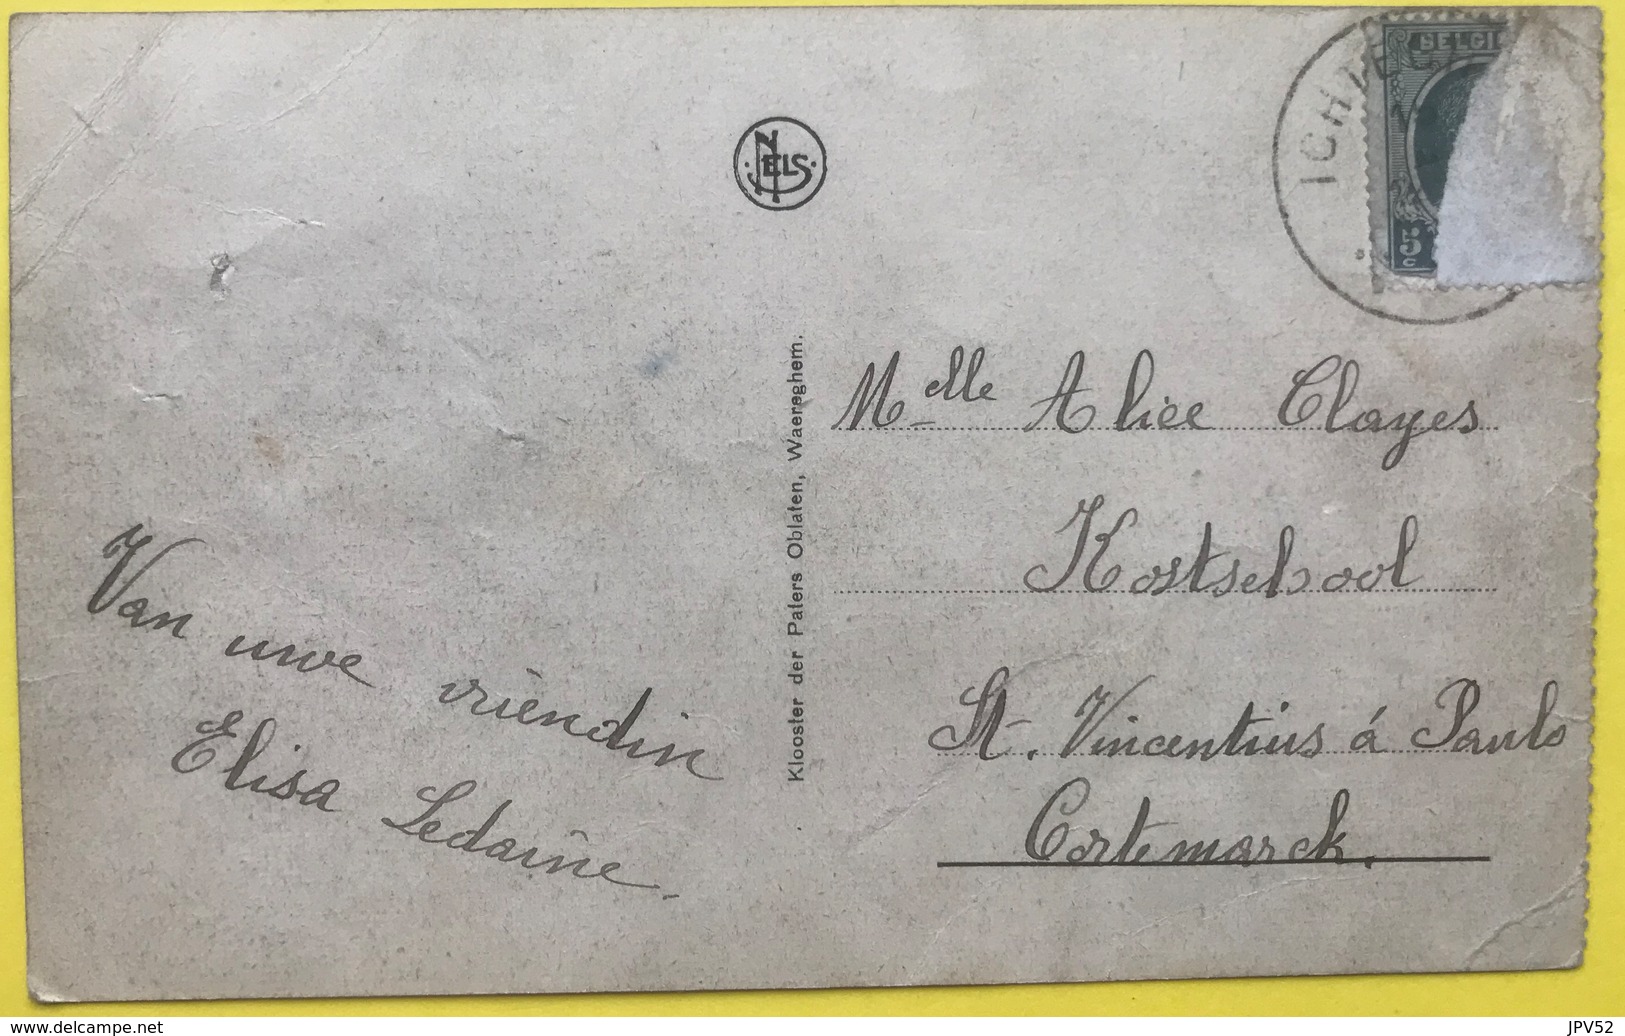 BELGI
ICHTEG
5
C
NELS
Klooster der Paters Oblaten, Waereghem.
Melle Alice Clayes
Kostschool
St. Vincentius á Paulo
Cortemarck.
Van uwe vriendin
Elisa Ledaine.
www.delcampe.net
JPV52